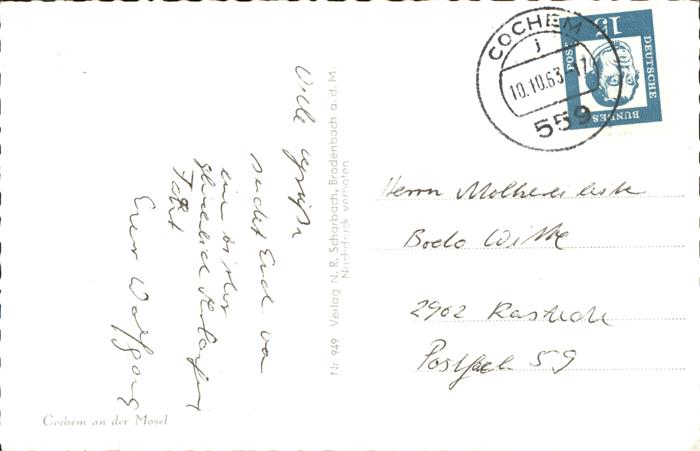 Viele Grüße
sendet Euch von
einer bisher
glücklich verlaufenen
Fahrt
Euer Wolfgang
Cochem an der Mosel
Nr. 949 Verlag N. R. Scharbach, Brodenbach a. d. M.
Nachdruck verboten
COCHEM
j
10.10.63-17
559
15
DEUTSCHE
BUNDES
POST
Herrn
Bodo Witte
2902 Rastede
Postfach 59